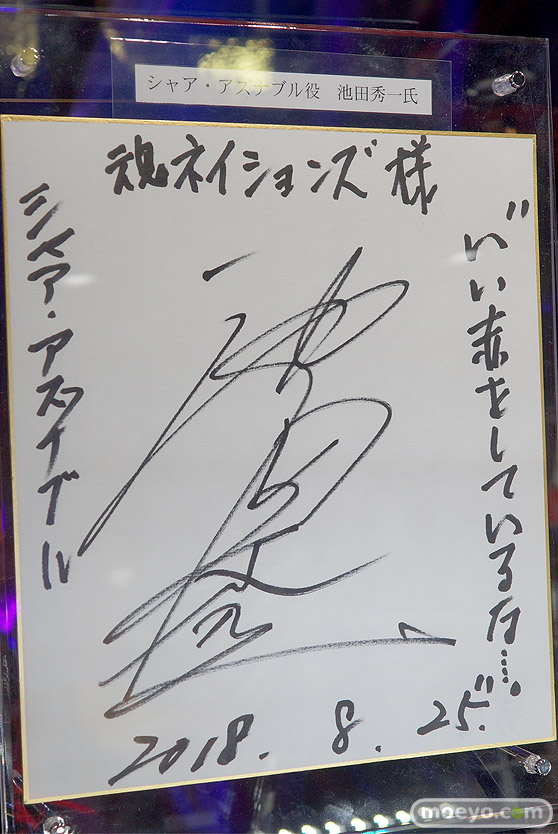 シャア・アズナブル役　池田秀一氏
魂ネイションズ様
"いい赤をしているな……。"
池田秀一
シャア・アズナブル
2018. 8. 25.
moeyo.com